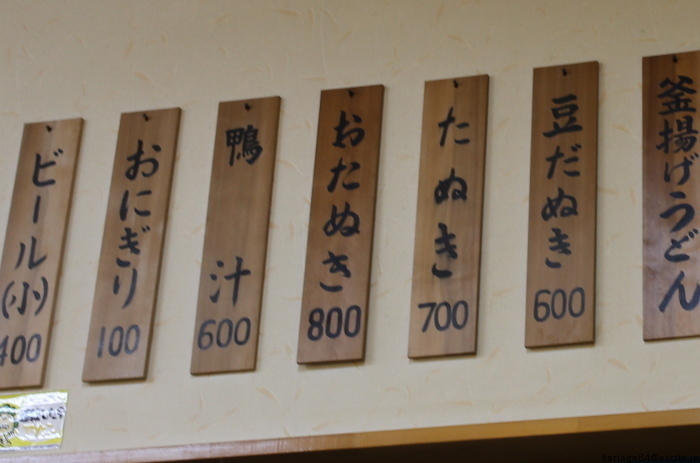 釜揚げうどん
豆だぬき
600
たぬき
700
おたぬき
800
鴨汁
600
おにぎり
100
ビール(小)
400